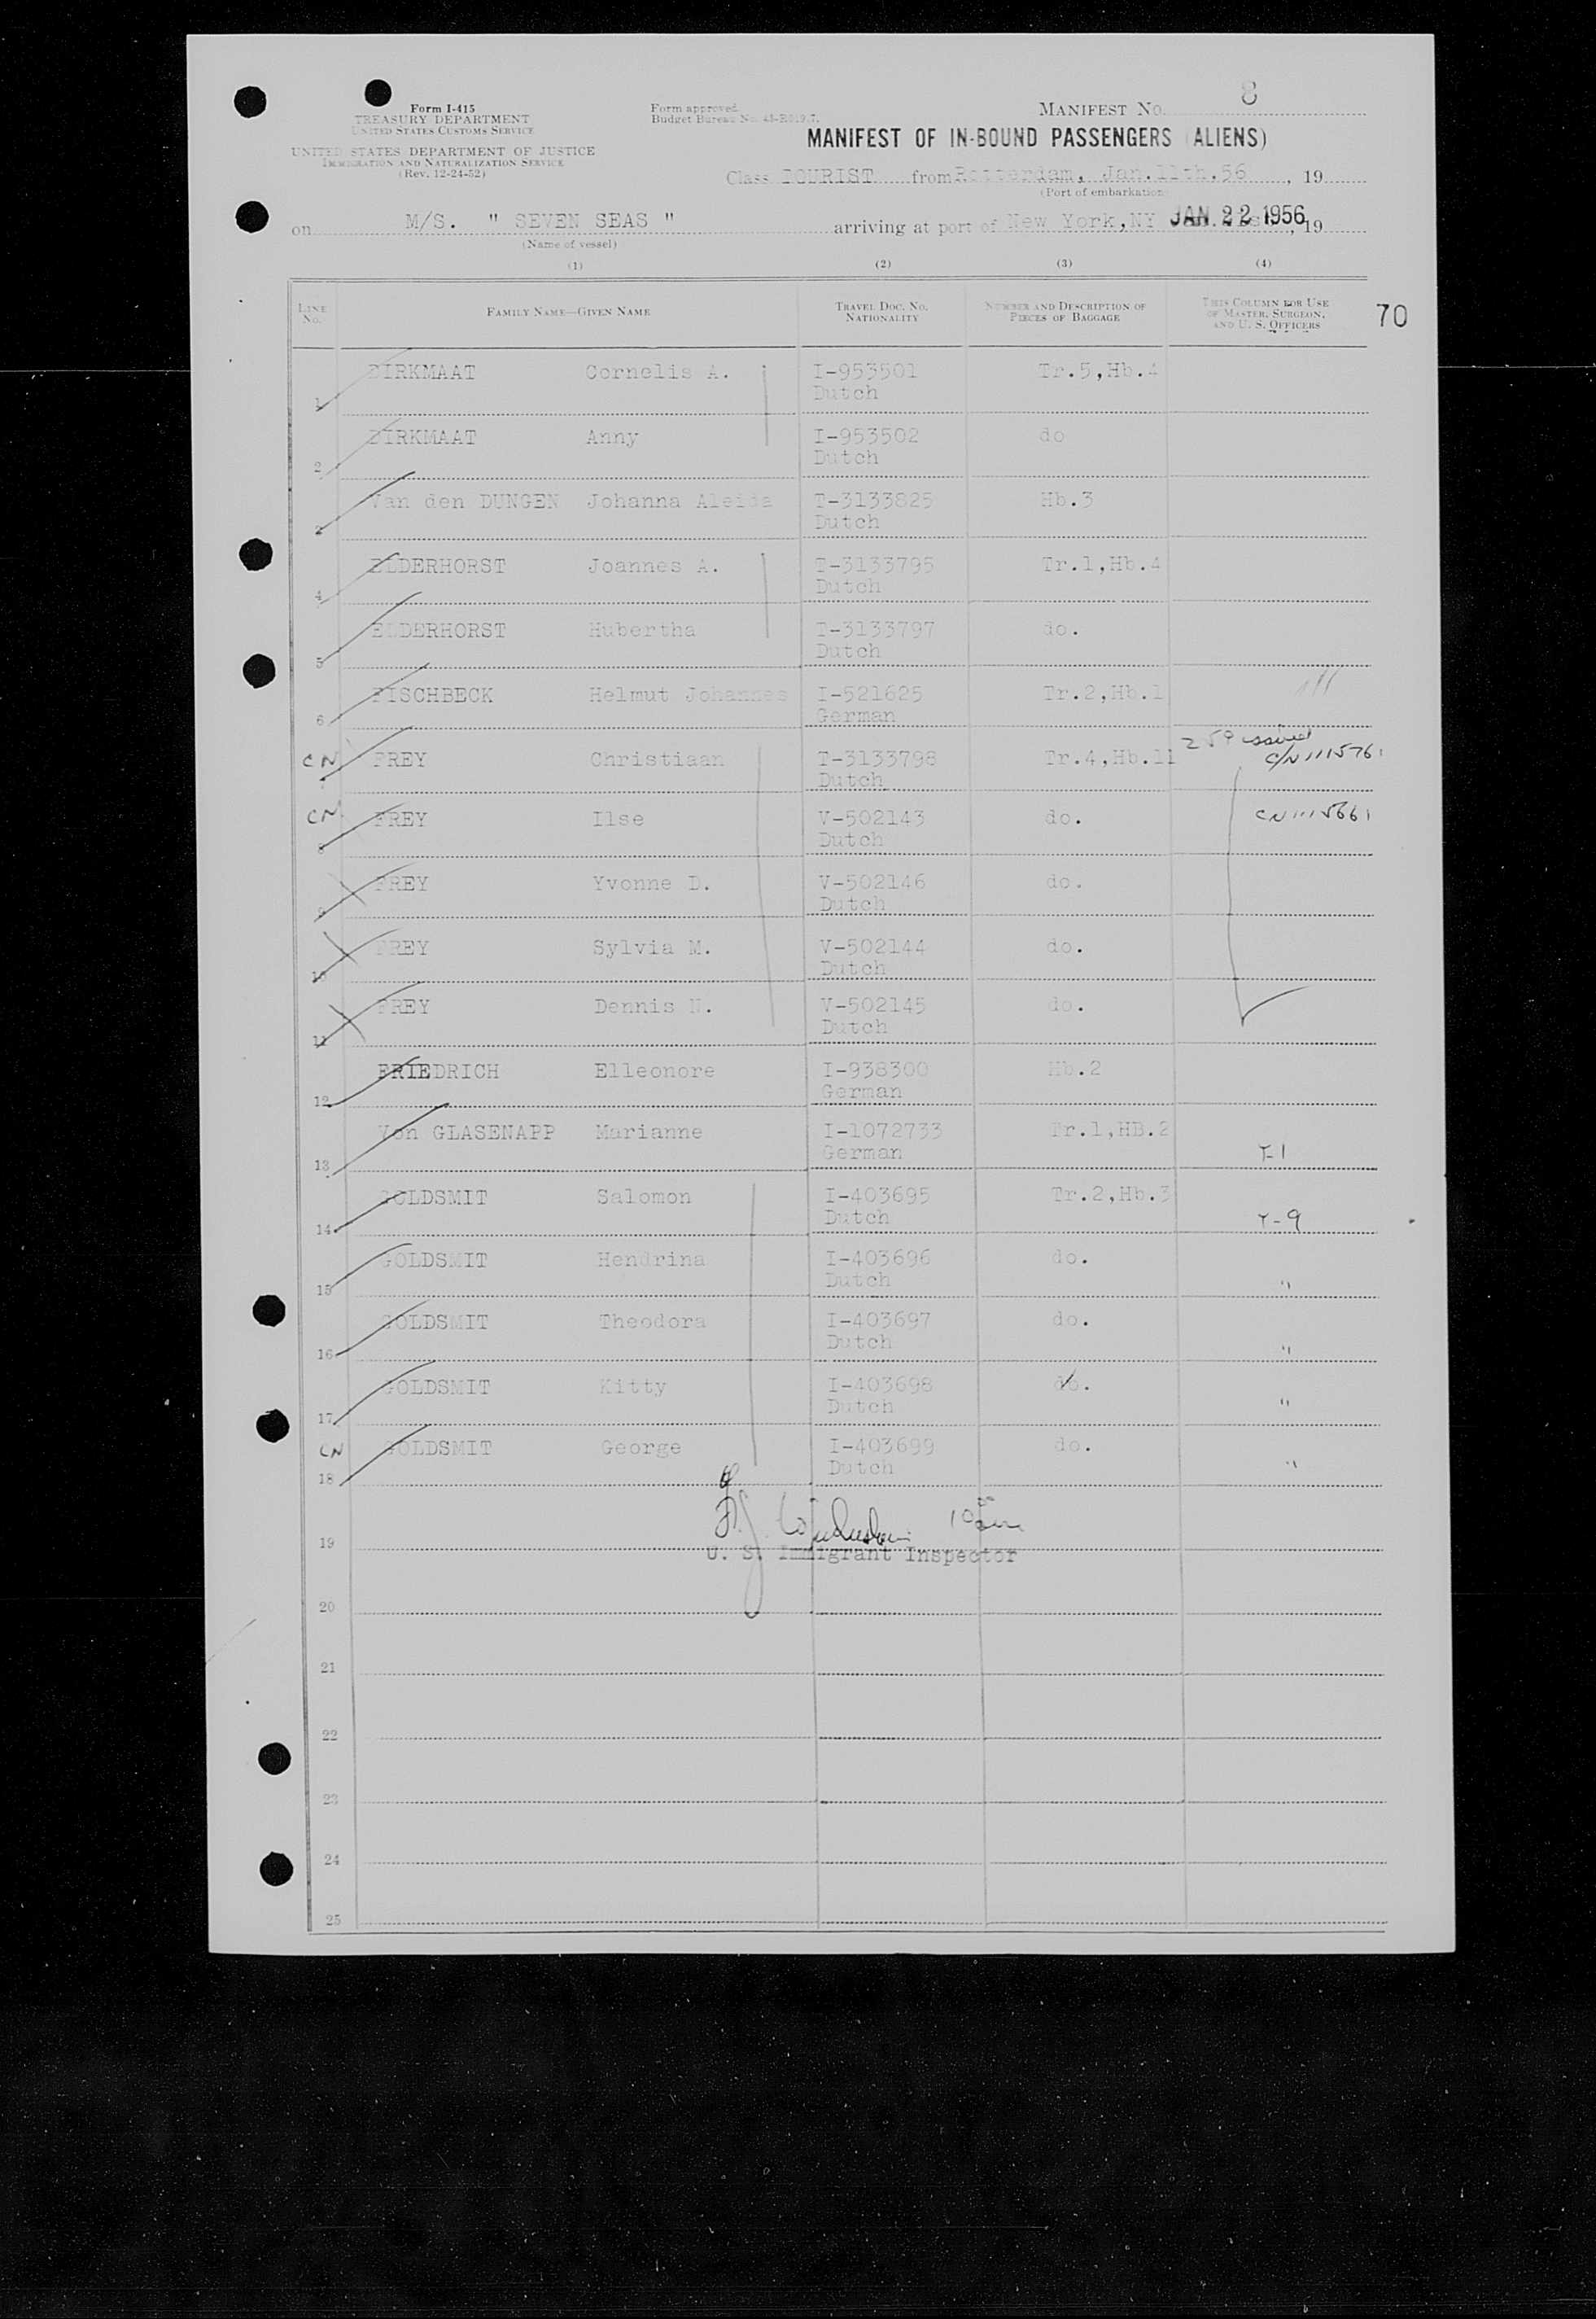 8
Form I-415
TREASURY DEPARTMENT
UNITED STATES CUSTOMS SERVICE
Form approved.
Budget Bureau No.
MANIFEST NO.
MANIFEST OF IN-BOUND PASSENGERS (ALIENS)
UNITED STATES DEPARTMENT OF JUSTICE
IMMIGRATION AND NATURALIZATION SERVICE
(Rev. 12-24-52)
Class TOURIST from Rotterdam, Jan.11th.56, 19
(Port of embarkation)
on M/S. " SEVEN SEAS " arriving at port of New York,NY JAN 22 1956, 19
(Name of vessel)
(1) (2) (3) (4)
LINE NO. FAMILY NAME—GIVEN NAME TRAVEL DOC. NO. NATIONALITY NUMBER AND DESCRIPTION OF PIECES OF BAGGAGE THIS COLUMN FOR USE OF MASTER, SURGEON, AND U. S. OFFICERS 70
DIRKMAAT Cornelis A. I-953501 Tr.5,Hb.4
1 Dutch
DIRKMAAT Anny I-953502 do
2 Dutch
Van den DUNGEN Johanna Aleida T-3133825 Hb.3
3 Dutch
ELDERHORST Joannes A. T-3133795 Tr.1,Hb.4
4 Dutch
ELDERHORST Hubertha T-3133797 do.
5 Dutch
FISCHBECK Helmut Johannes I-521625 Tr.2,Hb.1
6 German
CN FREY Christiaan T-3133798 Tr.4,Hb.11 259 issued C/N 1115761
7 Dutch
CN FREY Ilse V-502143 do. CN 1115661
8 Dutch
FREY Yvonne D. V-502146 do.
9 Dutch
FREY Sylvia M. V-502144 do.
10 Dutch
FREY Dennis V-502145 do.
11 Dutch
FRIEDRICH Elleonore I-938300 Hb.2
12 German
Von GLASENAPP Marianne I-1072733 Tr.1,HB.2
13 German T-1
GOLDSMIT Salomon I-403695 Tr.2,Hb.3
14 Dutch T-9
GOLDSMIT Hendrina I-403696 do.
15 Dutch "
GOLDSMIT Theodora I-403697 do.
16 Dutch "
GOLDSMIT Kitty I-403698 do.
17 Dutch "
CN GOLDSMIT George I-403699 do.
18 Dutch "
19
U. S. Immigrant Inspector
20
21
22
23
24
25